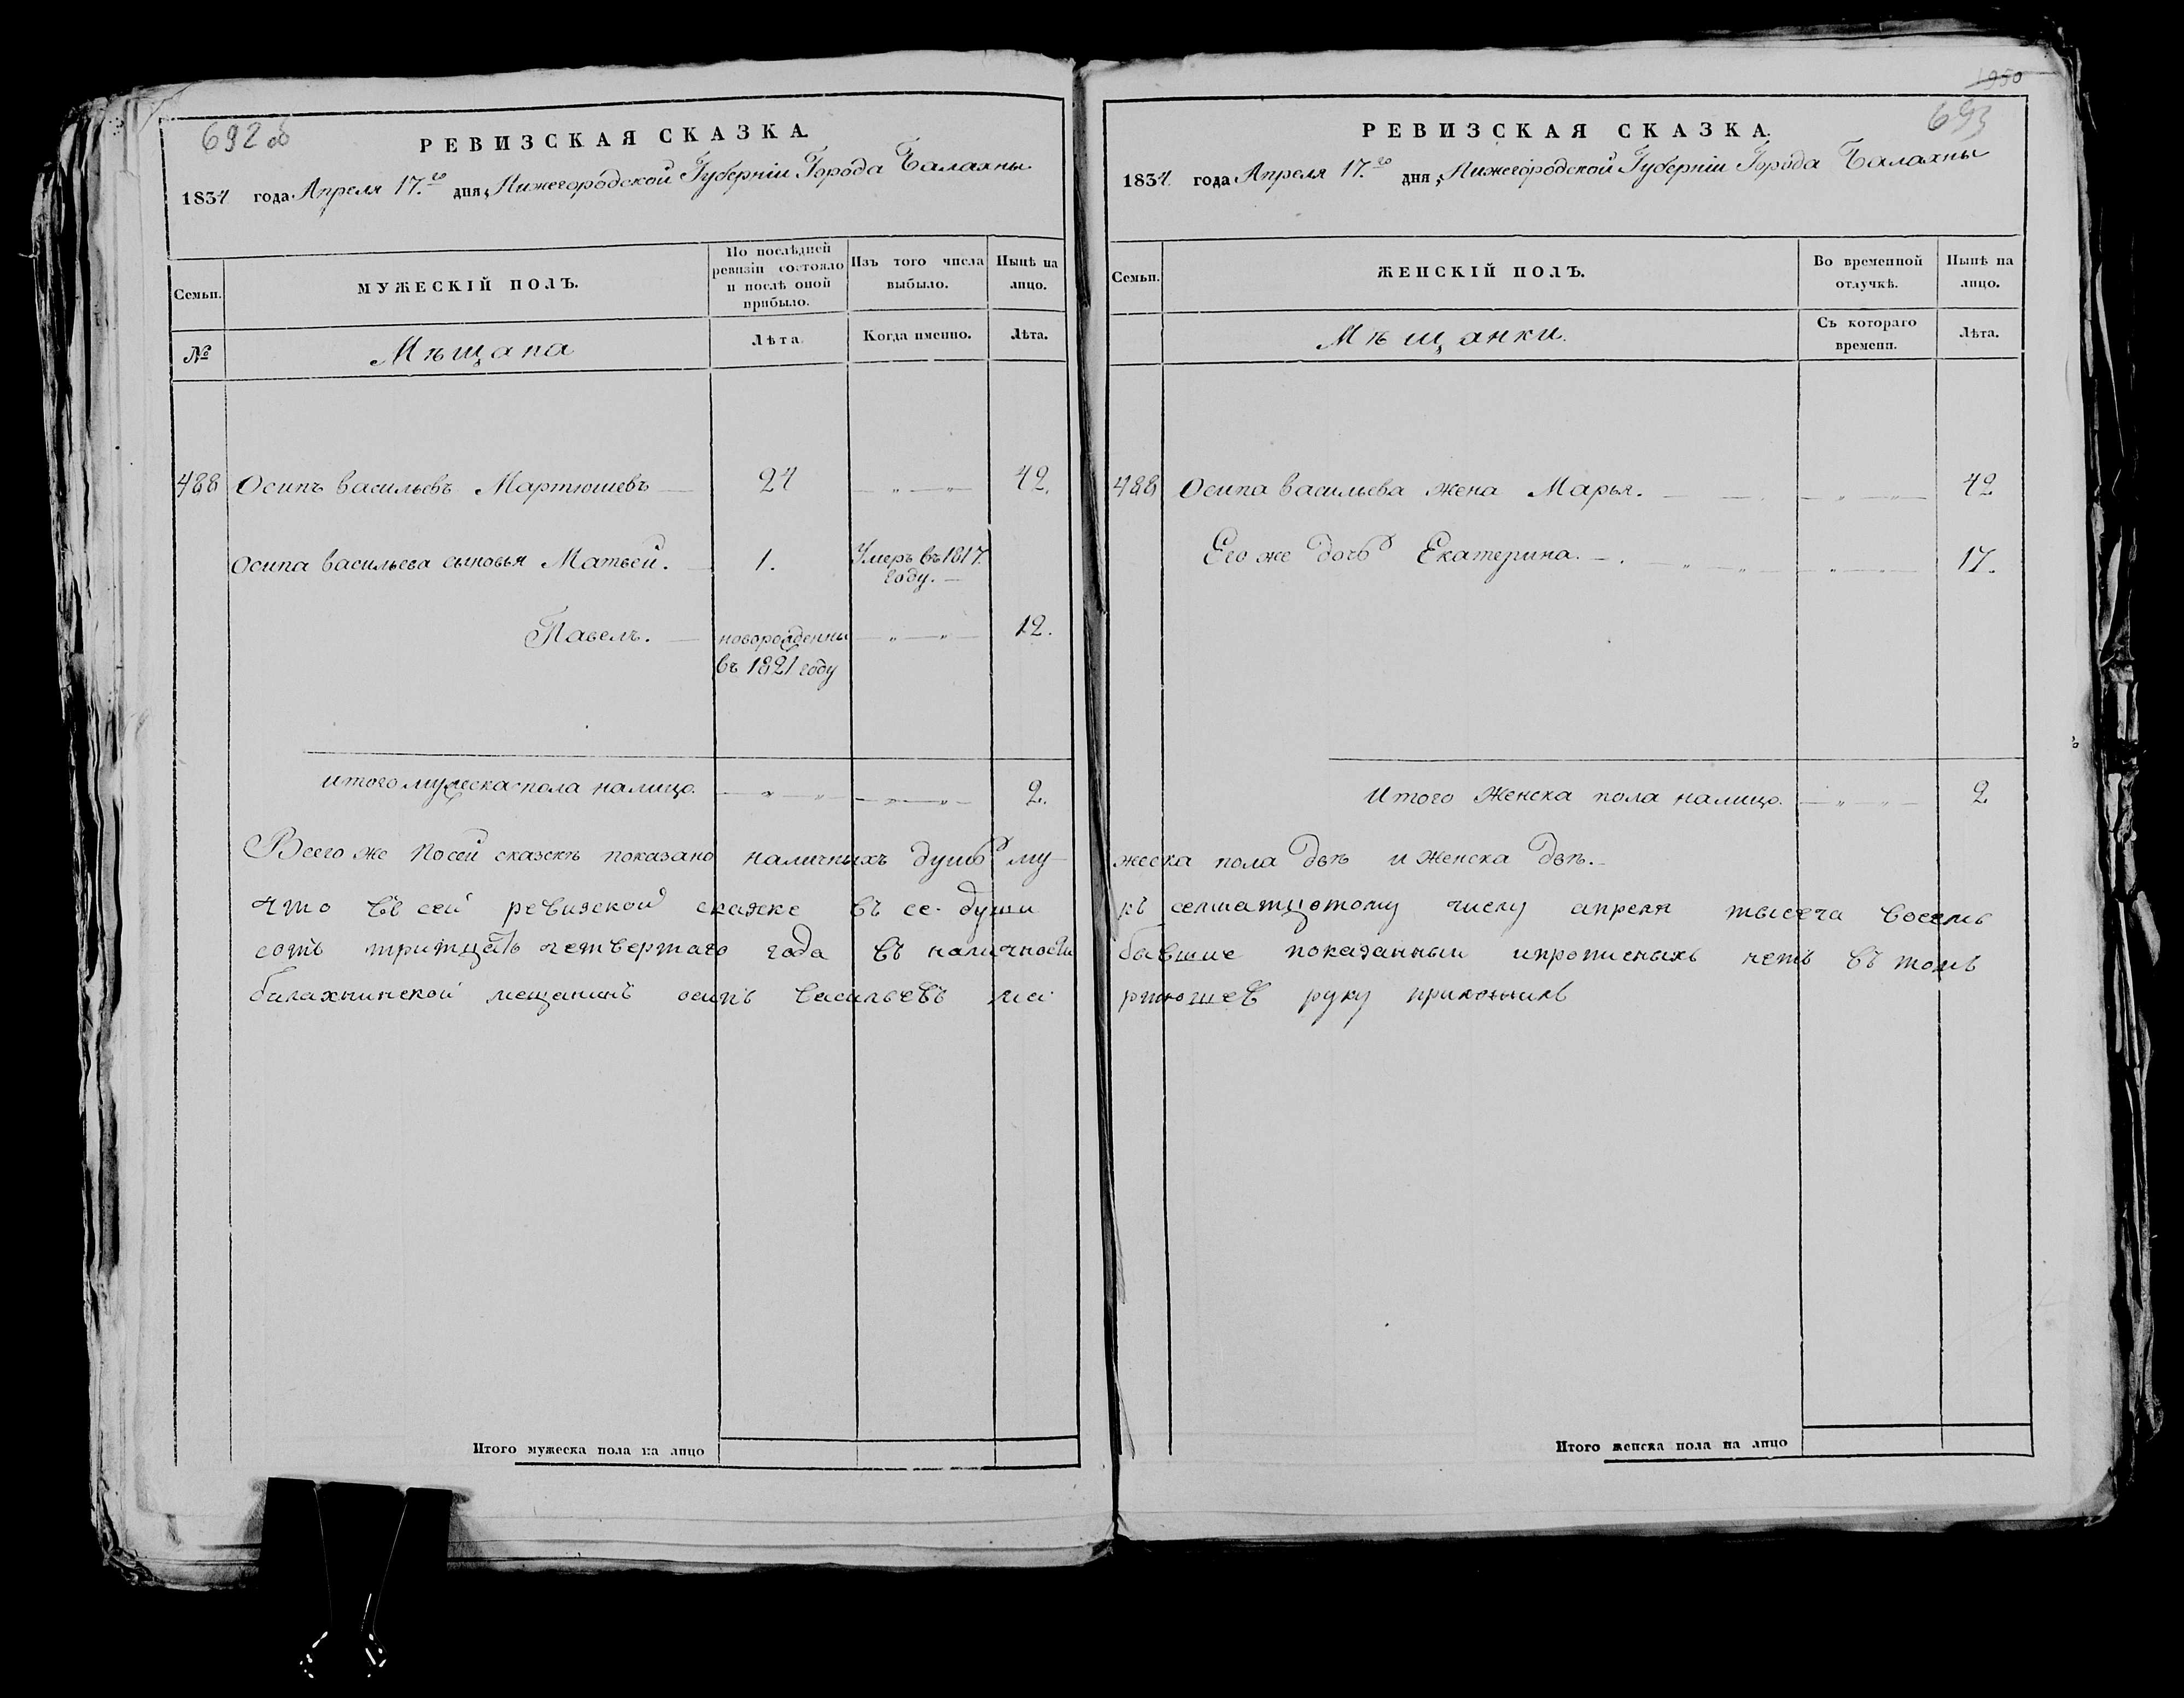 692 об
РЕВИЗСКАЯ СКАЗКА.
1834 года Апреля 17.го дня, Нижегородской Губерніи Города Балахны
Семьи.
МУЖЕСКІЙ ПОЛЪ.
По послѣдней ревизіи состояло и послѣ оной прибыло.
Изъ того числа выбыло.
Нынѣ на лицо.
№
Мѣщана
Лѣта.
Когда именно.
Лѣта.
488 Осипъ Васильевъ Мартюшевъ 24 — „ — „ 42.
Осипа Васильева сыновья Матвей. 1. Умеръ въ 1817 году.
Павелъ. новорожденны въ 1821 году — „ — „ — 12.
итого мужеска пола налицо. — „ — „ — „ — „ — 2.
Всего же посей сказскѣ показано наличныхъ душъ му-
что въ сей ревизской скаске въ се души
сотъ тритцать четвертаго года въ наличности
балахнинской мещанинъ осипъ васильевъ ма
Итого мужеска пола на лицо
1950
693
РЕВИЗСКАЯ СКАЗКА.
1834 года Апреля 17.го дня, Нижегородской Губерніи Города Балахны
Семьи.
ЖЕНСКІЙ ПОЛЪ.
Во временной отлучкѣ.
Нынѣ на лицо.
Мѣщанки.
Съ котораго времени.
Лѣта.
488 Осипа Васильева жена Марья. — — „ — „ — 42
Его же дочь Екатерина. — . „ — „ — „ — „ — 17.
Итого Женска пола налицо. — „ — „ — 2
жеска пола двѣ и Женска двѣ. —
къ семнатцотому числу апреля тысеча восемь
бывшие показанныи ипрописныхъ нетъ въ томъ
ртюшев руку приложилъ
Итого женска пола на лицо